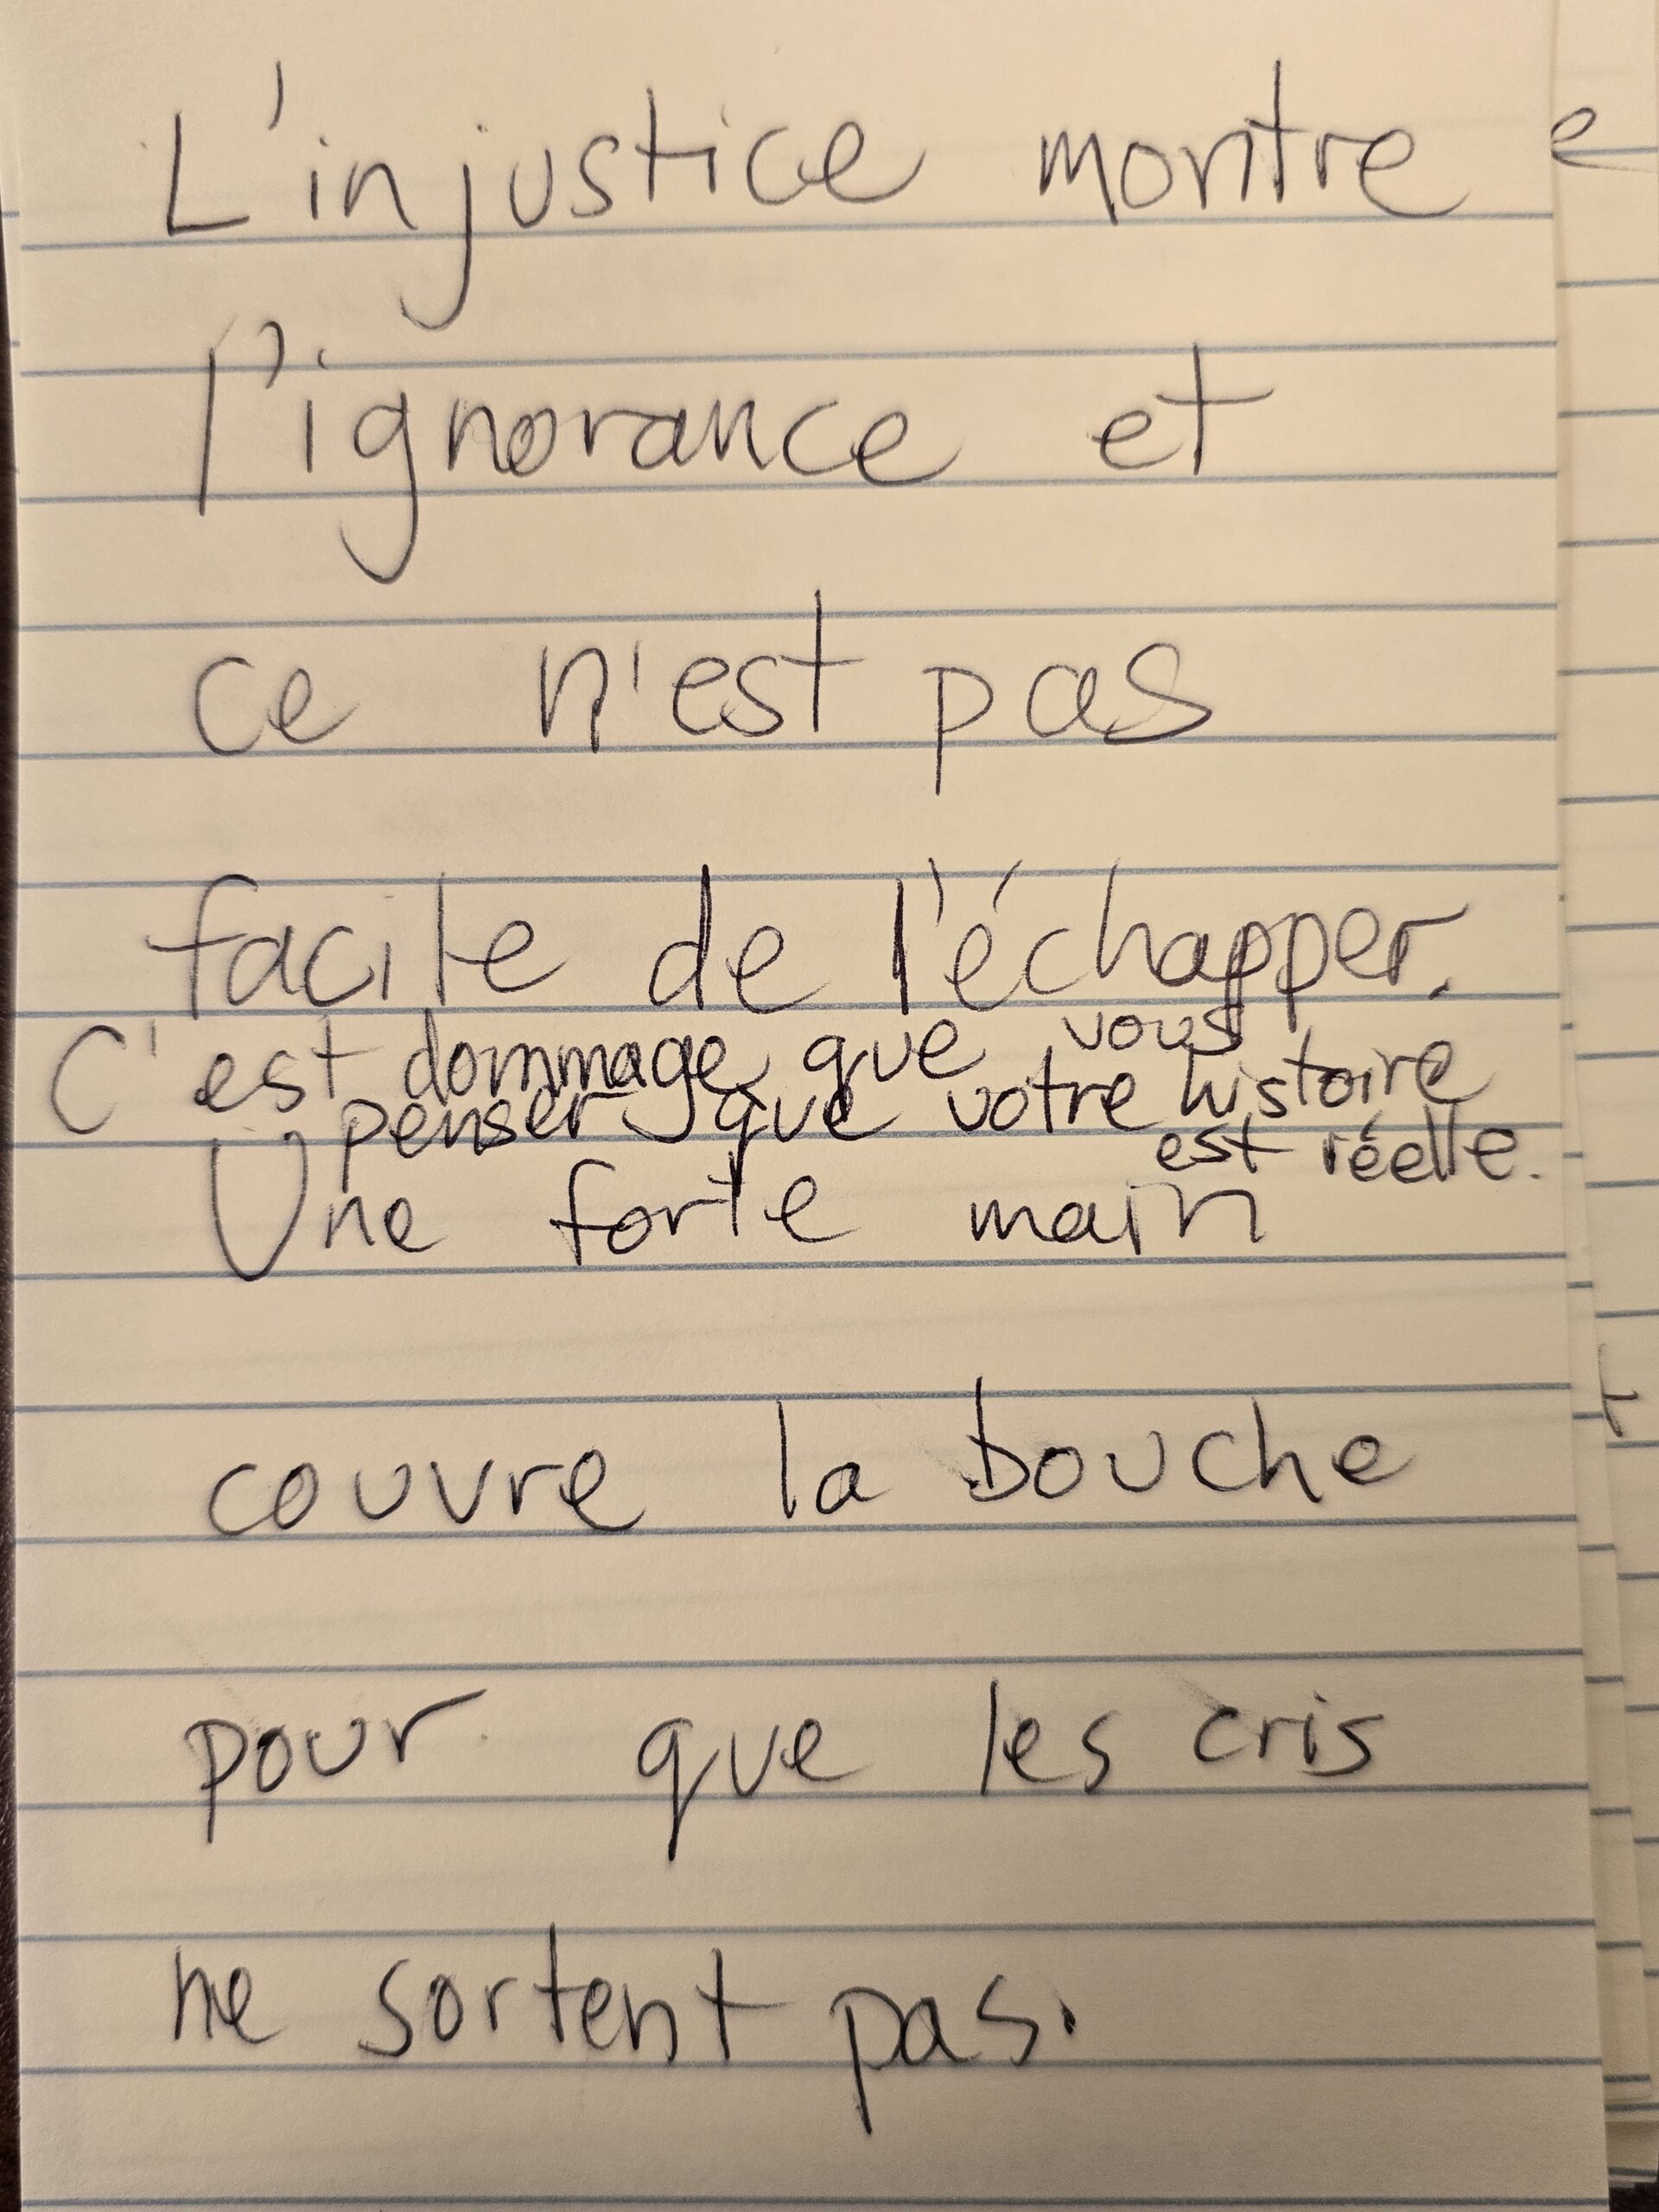 L'injustice montre
l'ignorance et
ce n'est pas
facile de l'échapper.
C'est dommage que vous
penser que votre histoire
est réelle.
Une forte main
couvre la bouche
pour que les cris
ne sortent pas.